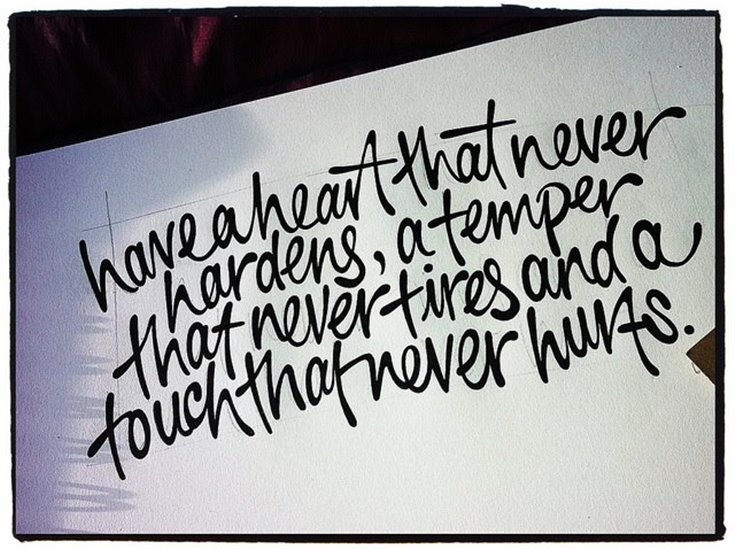 have a heart that never
hardens, a temper
that never tires and a
touch that never hurts.